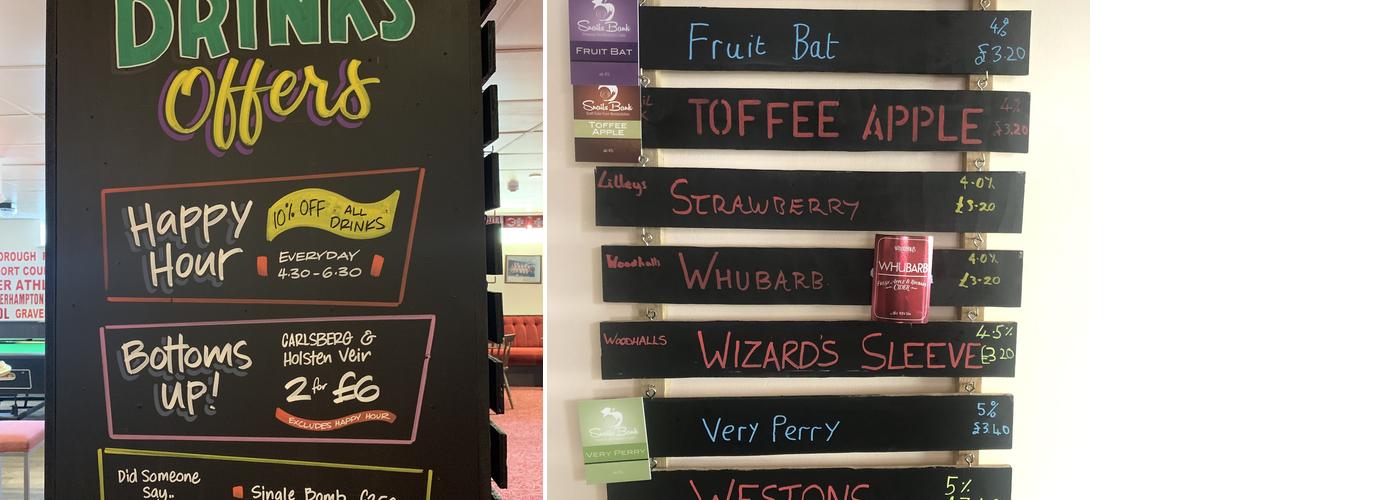 DRINKS
Offers
Happy
Hour
10% OFF ALL
DRINKS
EVERYDAY
4.30-6:30
Bottoms
UP!
CARLSBERG &
Holsten Veir
2 for £6
EXCLUDES HAPPY HOUR
Did Someone
Say..
Single Bomb
OROUGH
ORT COU
ER ATHL
ERHAMPTON
OL GRAVE
Snails Bank
FRUIT BAT
Fruit Bat
4%
£3.20
Snails Bank
TOFFEE
APPLE
TOFFEE APPLE
4%
£3.20
Lilleys
STRAWBERRY
4.0%
£3.20
Woodhalls
WHUBARB
WHUBARB
CIDER
4.0%
£3.20
WOODHALLS
WIZARD'S SLEEVE
4.5%
£3.20
Snails Bank
VERY PERRY
Very Perry
5%
£3.40
WESTONS
5%